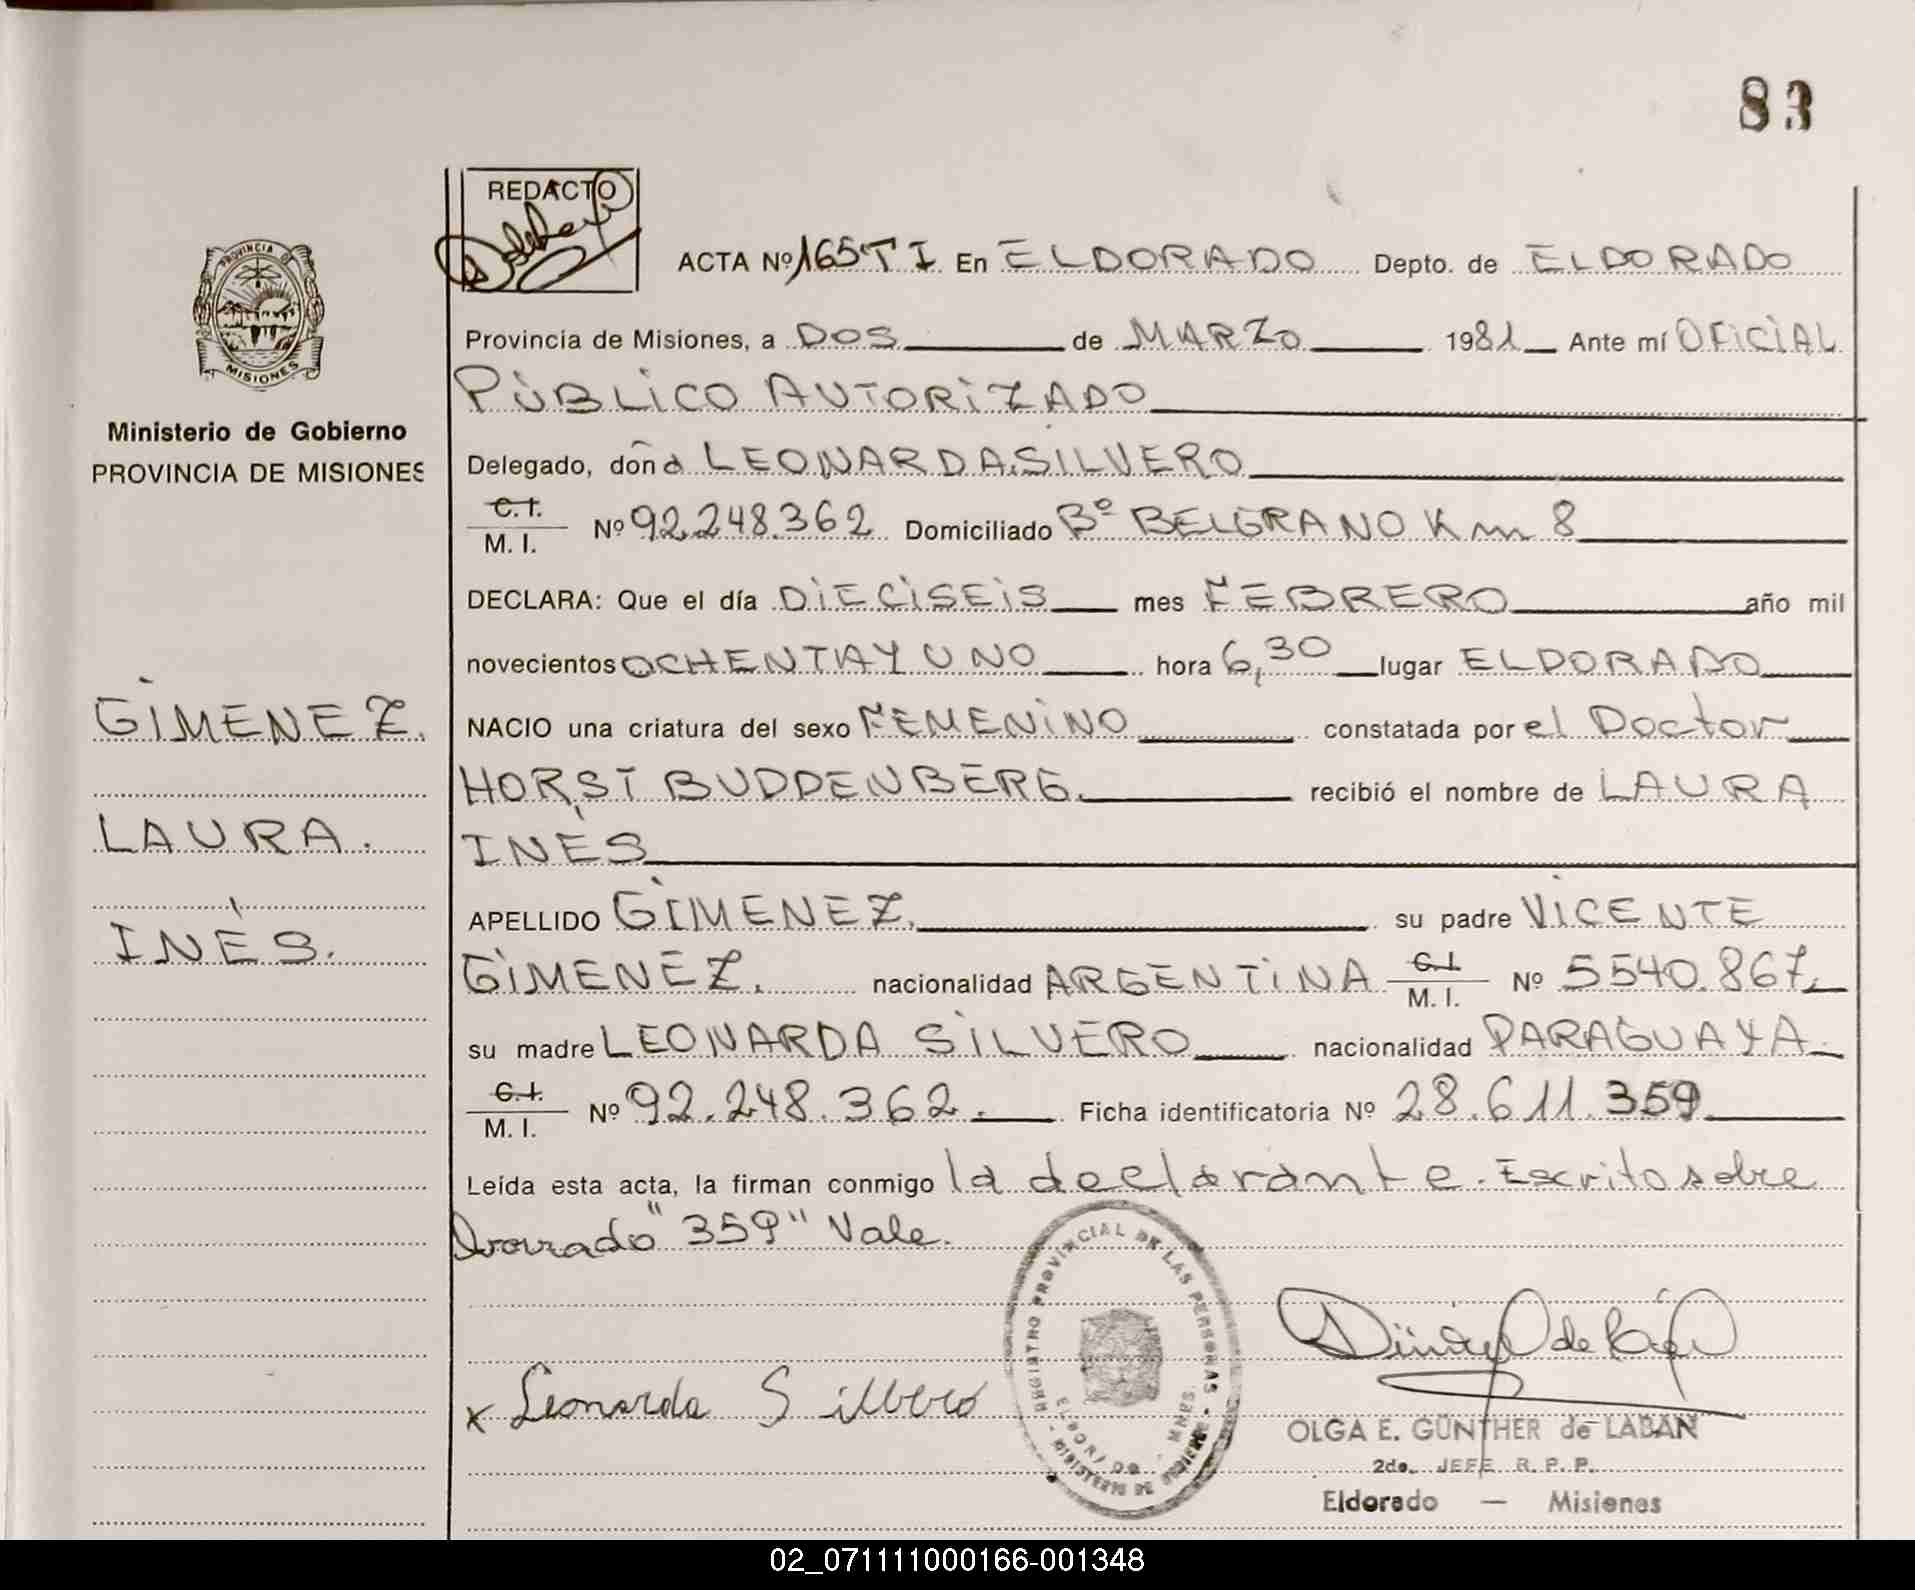 83
REDACTO
ACTA Nº 165 T I En ELDORADO Depto. de ELDORADO
Provincia de Misiones, a DOS de MARZO 1981 Ante mí OFICIAL
PÚBLICO AUTORIZADO
Delegado, doña LEONARDA SILVERO
C.I.
M. I. Nº 92.248.362 Domiciliado Bº BELGRANO Km 8
DECLARA: Que el día DIECISEIS mes FEBRERO año mil
novecientos OCHENTA Y UNO hora 6,30 lugar ELDORADO
NACIO una criatura del sexo FEMENINO constatada por el Doctor
HORST BUDDENBERG. recibió el nombre de LAURA
INÉS
APELLIDO GIMENEZ. su padre VICENTE
GIMENEZ. nacionalidad ARGENTINA C.I. M. I. Nº 5540.867.
su madre LEONARDA SILVERO nacionalidad PARAGUAYA.
C.I.
M. I. Nº 92.248.362. Ficha identificatoria Nº 28.611.359
Leída esta acta, la firman conmigo la declarante. Escrito sobre
borrado "359" Vale.
PROVINCIA DE
MISIONES
Ministerio de Gobierno
PROVINCIA DE MISIONES
GIMENEZ.
LAURA.
INÉS.
x Leonarda Silbero
REGISTRO PROVINCIAL DE LAS PERSONAS
ELDORADO - MNES.
OLGA E. GÜNTHER de LABAN
2do. JEFE R. P. P.
Eldorado — Misiones
02_071111000166-001348